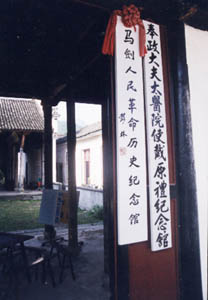 奉政大夫太醫院使戴原禮纪念館
马剑人民革命历史纪念馆